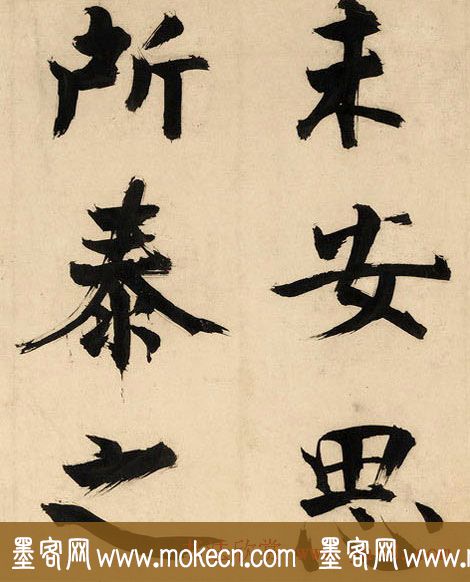 未安思
所泰之
墨客网 www.mokecn.com 墨客网 www.